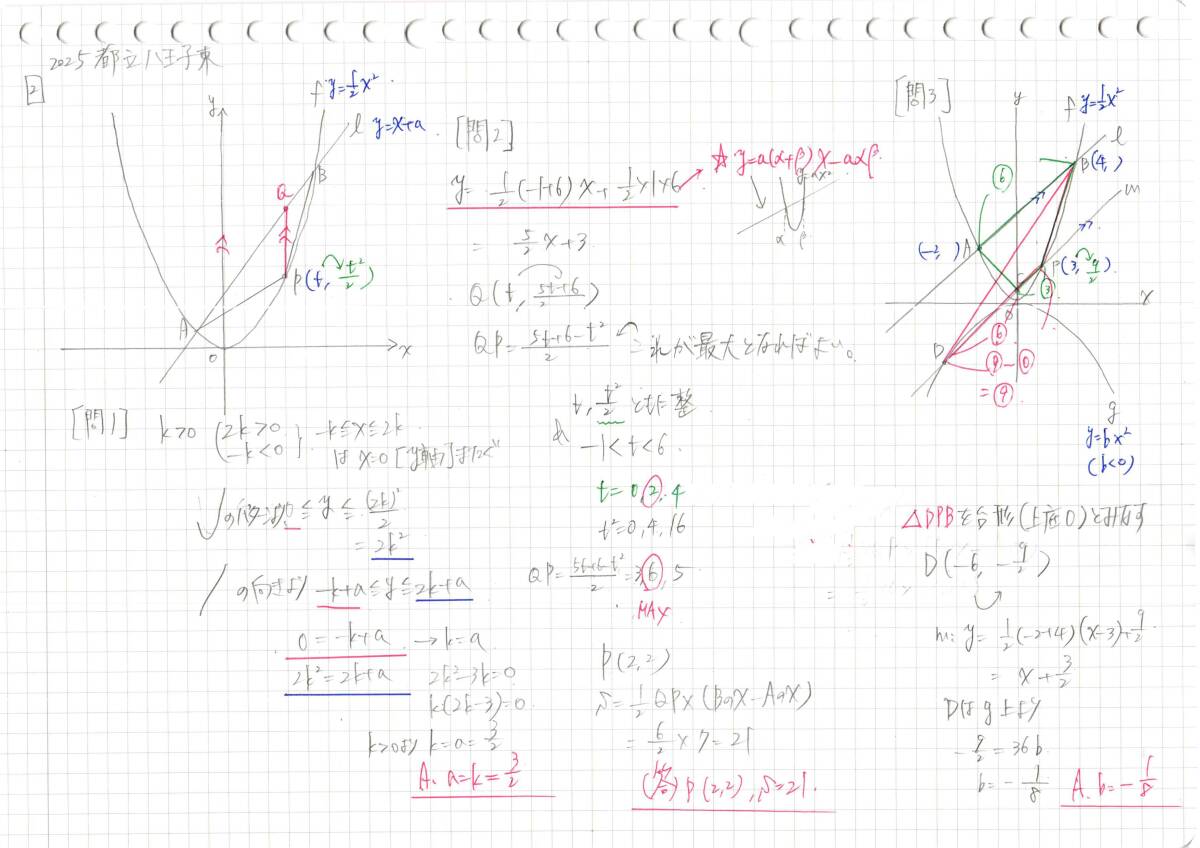 2025 都立八王子東
2
f y=1/2x²
l y=x+a
y
B
Q
P(t, t²/2)
A
O
x
[問1] k>0 (2k>0
-k<0) -k≦x≦2k
は x=0 [y軸]またぐ
の向きより 0≦y≦(2k)²/2
=2k²
の向きより -k+a≦y≦2k+a
0=-k+a →k=a
2k²=2k+a 2k²-3k=0
k(2k-3)=0
k>0より k=a=3/2
A. a=k=3/2
[問2]
y=1/2(-1+6)x+1/2×1×6
☆ y=a(α+β)x-aαβ
y=ax²
α β
= 5/2x+3
Q(t, (5t+6)/2)
QP=(5t+6-t²)/2 これが最大となればよい。
t, t²/2 ともに整
-1<t<6
t=0,2,4
t²=0,4,16
QP=(5t+6-t²)/2=3,6,5
MAX
P(2,2)
S=1/2QP×(BのX-AのX)
=6/2×7=21
(答)P(2,2), S=21.
[問3]
y
f y=1/2x²
l
B(4, )
m
⑥
A
(-2, )
C
P(3, 9/2)
③
O
x
D
⑥
⑨-⓪
=⑨
g
y=bx²
(b<0)
D(-6, -9/2)
m: y=1/2(-2+4)(x-3)+9/2
= x+3/2
Dはg上より
-9/2=36b
b=-1/8
A. b=-1/8